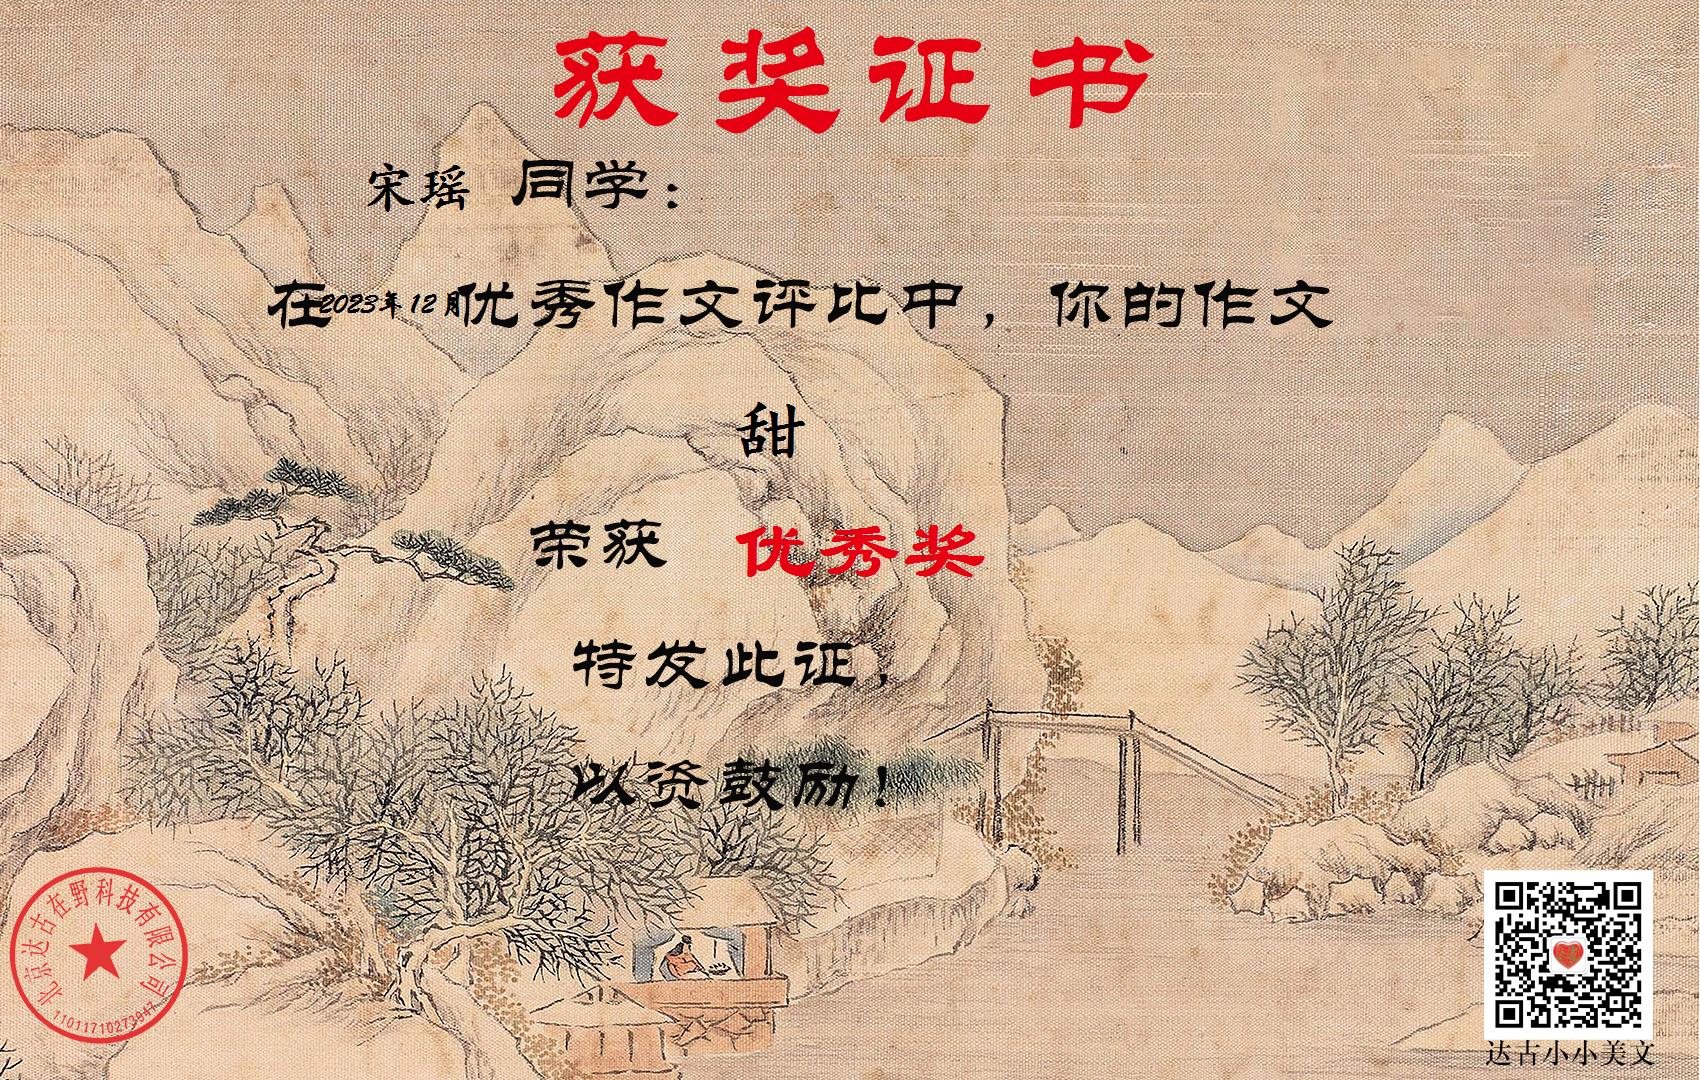 获奖证书
宋瑶 同学：
在2023年12月优秀作文评比中，你的作文
甜
荣获 优秀奖
特发此证，
以资鼓励！
北京达古在野科技有限公司
11011710273947
达古小小美文